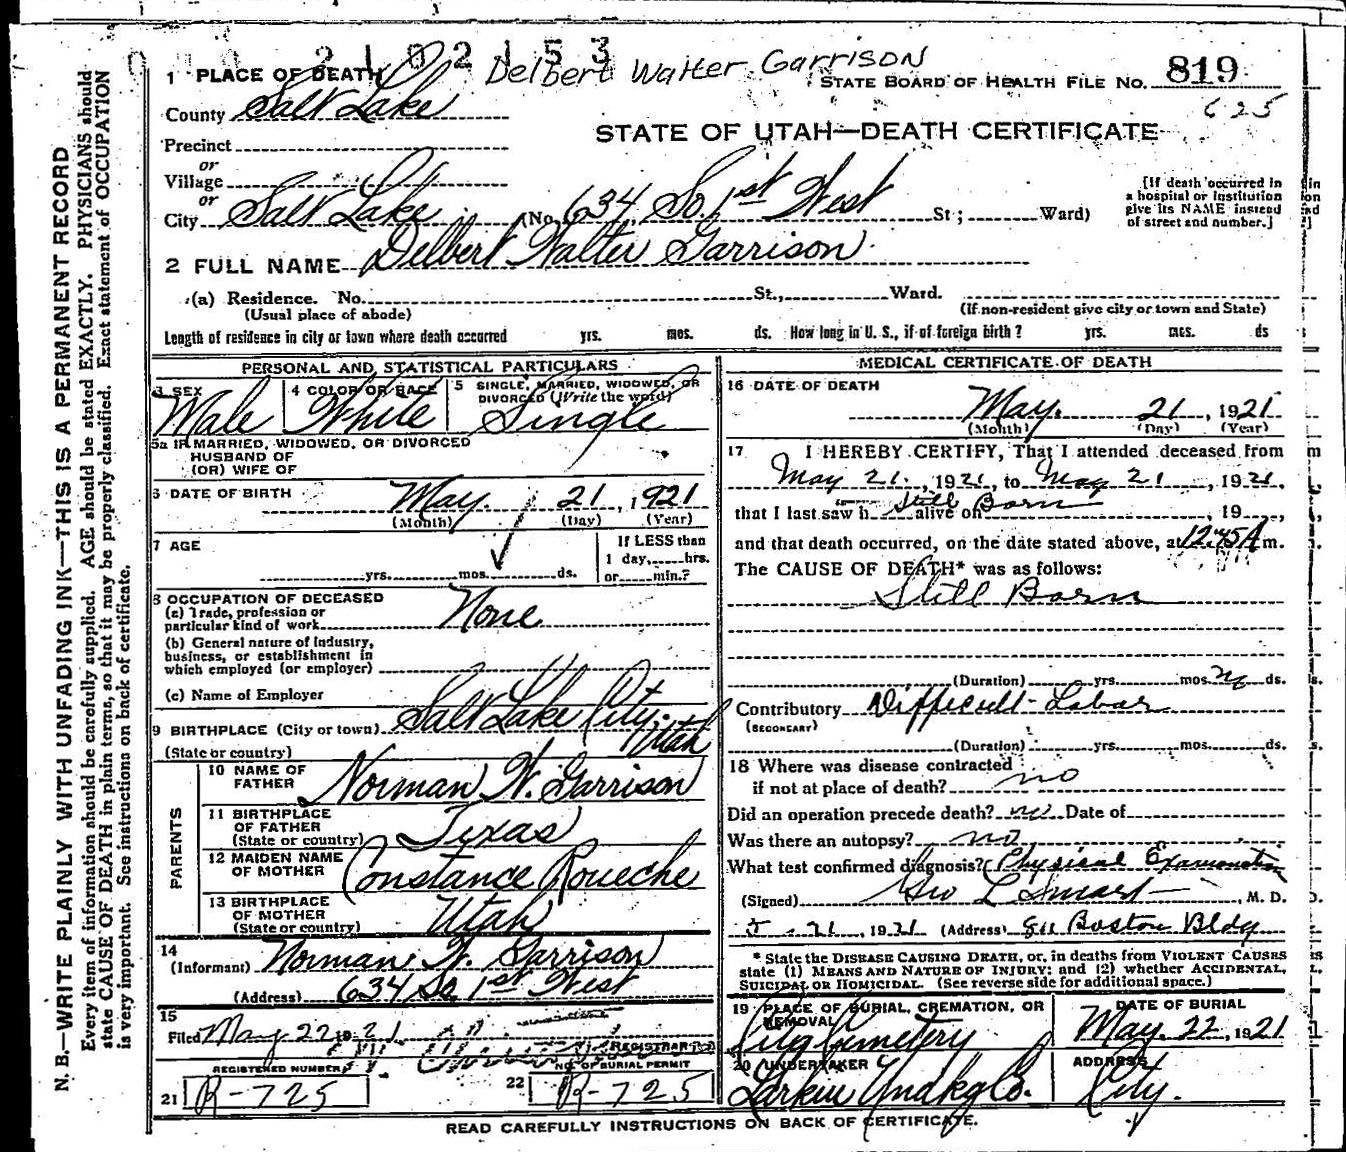 2102153
Delbert Walter Garrison
1 PLACE OF DEATH
STATE BOARD OF HEALTH FILE NO. 819
County Salt Lake
625
STATE OF UTAH—DEATH CERTIFICATE
Precinct
or
Village
or
City Salt Lake (No. 634 So 1st West St; Ward)
[If death occurred in
a hospital or institution
give its NAME instead
of street and number.]
2 FULL NAME Delbert Walter Garrison
(a) Residence. No. St., Ward.
(Usual place of abode) (If non-resident give city or town and State)
Length of residence in city or town where death occurred yrs. mos. ds. How long in U. S., if of foreign birth? yrs. mos. ds
PERSONAL AND STATISTICAL PARTICULARS
3 SEX Male
4 COLOR OR RACE White
5 SINGLE, MARRIED, WIDOWED, OR
DIVORCED (Write the word) Single
5a IF MARRIED, WIDOWED, OR DIVORCED
HUSBAND OF
(OR) WIFE OF
6 DATE OF BIRTH May 21, 1921
(Month) (Day) (Year)
7 AGE
yrs. mos. ds.
If LESS than
1 day, hrs.
or min.?
8 OCCUPATION OF DECEASED
(a) Trade, profession or
particular kind of work None
(b) General nature of industry,
business, or establishment in
which employed (or employer)
(c) Name of Employer
9 BIRTHPLACE (City or town) Salt Lake City.
(State or country) Utah
PARENTS
10 NAME OF
FATHER Norman W. Garrison
11 BIRTHPLACE
OF FATHER
(State or country) Texas
12 MAIDEN NAME
OF MOTHER Constance Roueche
13 BIRTHPLACE
OF MOTHER
(State or country) Utah
14
(Informant) Norman W. Garrison
(Address) 634 So 1st West
15
Filed May 22 1921
REGISTRAR
REGISTERED NUMBER
21 R-725
NO. OF BURIAL PERMIT
22 R-725
MEDICAL CERTIFICATE OF DEATH
16 DATE OF DEATH
May. 21, 1921
(Month) (Day) (Year)
17 I HEREBY CERTIFY, That I attended deceased from
May 21, 1921, to May 21, 1921,
that I last saw h Still alive on Born, 19 ,
and that death occurred, on the date stated above, at 12:45 A m.
The CAUSE OF DEATH* was as follows:
Still Born
(Duration) yrs. mos. ds.
Contributory Difficult-Labor
(SECONDARY)
(Duration) yrs. mos. ds.
18 Where was disease contracted
if not at place of death? no
Did an operation precede death? no Date of
Was there an autopsy? no
What test confirmed diagnosis? Physical Examination
(Signed) Geo L Smart, M. D.
5-21, 1921 (Address) 811 Boston Bldg
* State the DISEASE CAUSING DEATH, or, in deaths from VIOLENT CAUSES
state (1) MEANS AND NATURE OF INJURY; and (2) whether ACCIDENTAL,
SUICIDAL OR HOMICIDAL. (See reverse side for additional space.)
19 PLACE OF BURIAL, CREMATION, OR
REMOVAL
City Cemetery
DATE OF BURIAL
May. 22, 1921
20 UNDERTAKER
Larkin Undkg Co.
ADDRESS
City.
READ CAREFULLY INSTRUCTIONS ON BACK OF CERTIFICATE.
N. B.—WRITE PLAINLY WITH UNFADING INK—THIS IS A PERMANENT RECORD
Every item of information should be carefully supplied. AGE should be stated EXACTLY. PHYSICIANS should
state CAUSE OF DEATH in plain terms, so that it may be properly classified. Exact statement of OCCUPATION
is very important. See instructions on back of certificate.